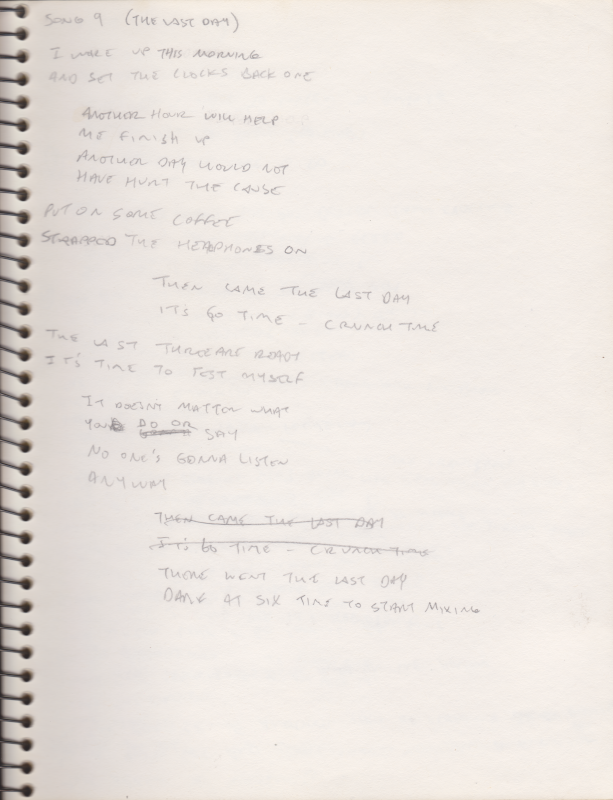 SONG 9 (THE LAST DAY)
I WAKE UP THIS MORNING
AND SET THE CLOCKS BACK ONE
ANOTHER HOUR WILL HELP
ME FINISH UP
ANOTHER DAY WOULD NOT
HAVE HURT THE CAUSE
PUT ON SOME COFFEE
STRAPPED THE HEADPHONES ON
THEN CAME THE LAST DAY
IT'S GO TIME - CRUNCH TIME
THE LAST THREE ARE READY
IT'S TIME TO TEST MYSELF
IT DOESN'T MATTER WHAT
YOU DO OR SAY
NO ONE'S GONNA LISTEN
ANYWAY
THEN CAME THE LAST DAY
IT'S GO TIME - CRUNCH TIME
THERE WENT THE LAST DAY
DARK AT SIX TIME TO START MIXING